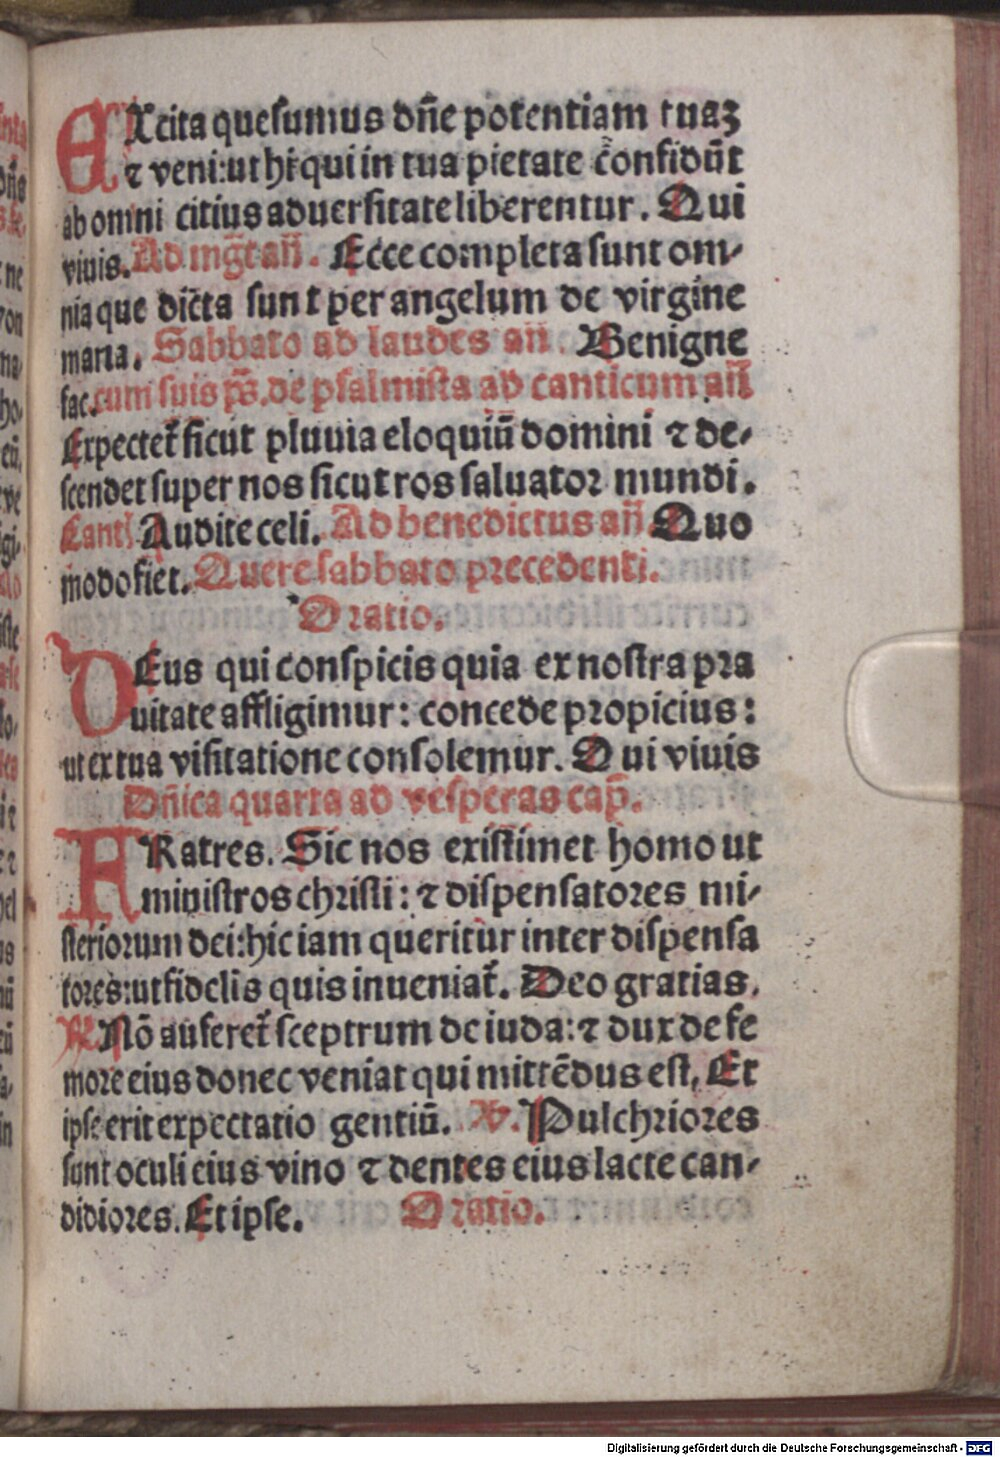 EXcita quesumus dn̄e potentiam tuaꝫ
⁊ veni: ut hi̇ qui in tua pietate cōnfidūt
ab omni citius aduersitate liberentur. Qui
viuis. Ad mg̅t an̄. Ecce completa sunt om-
nia que dicta sunt per angelum de virgine
maria. Sabbato ad laudes an̄. Benigne
fac. cum suis ps̄. de psalmista ad canticum an̄
Expectet᷑ sicut pluuia eloquiū domini ⁊ de-
scendet super nos sicut ros saluator mundi.
Cant᷑ Audite celi. Ad benedictus an̄ Quo
modo fiet. Quere sabbato precedenti.
Oratio.
DEus qui conspicis quia ex nostra pra
uitate affligimur: concede propicius:
ut ex tua visitatione consolemur. Qui viuis
Dn̄ica quarta ad vesperas cap̄.
FRatres. Sic nos existimet homo ut
ministros christi: ⁊ dispensatores mi-
steriorum dei: hic iam queritur inter dispensa
tores: ut fidelis quis inueniat᷑. Deo gratias.
℟ Nō auferet᷑ sceptrum de iuda: ⁊ dux de fe
more eius donec veniat qui mittēdus est, Et
ipse erit expectatio gentiū. ℣. Pulchriores
sunt oculi eius vino ⁊ dentes eius lacte can-
didiores. Et ipse. Oratio.
Digitalisierung gefördert durch die Deutsche Forschungsgemeinschaft - DFG